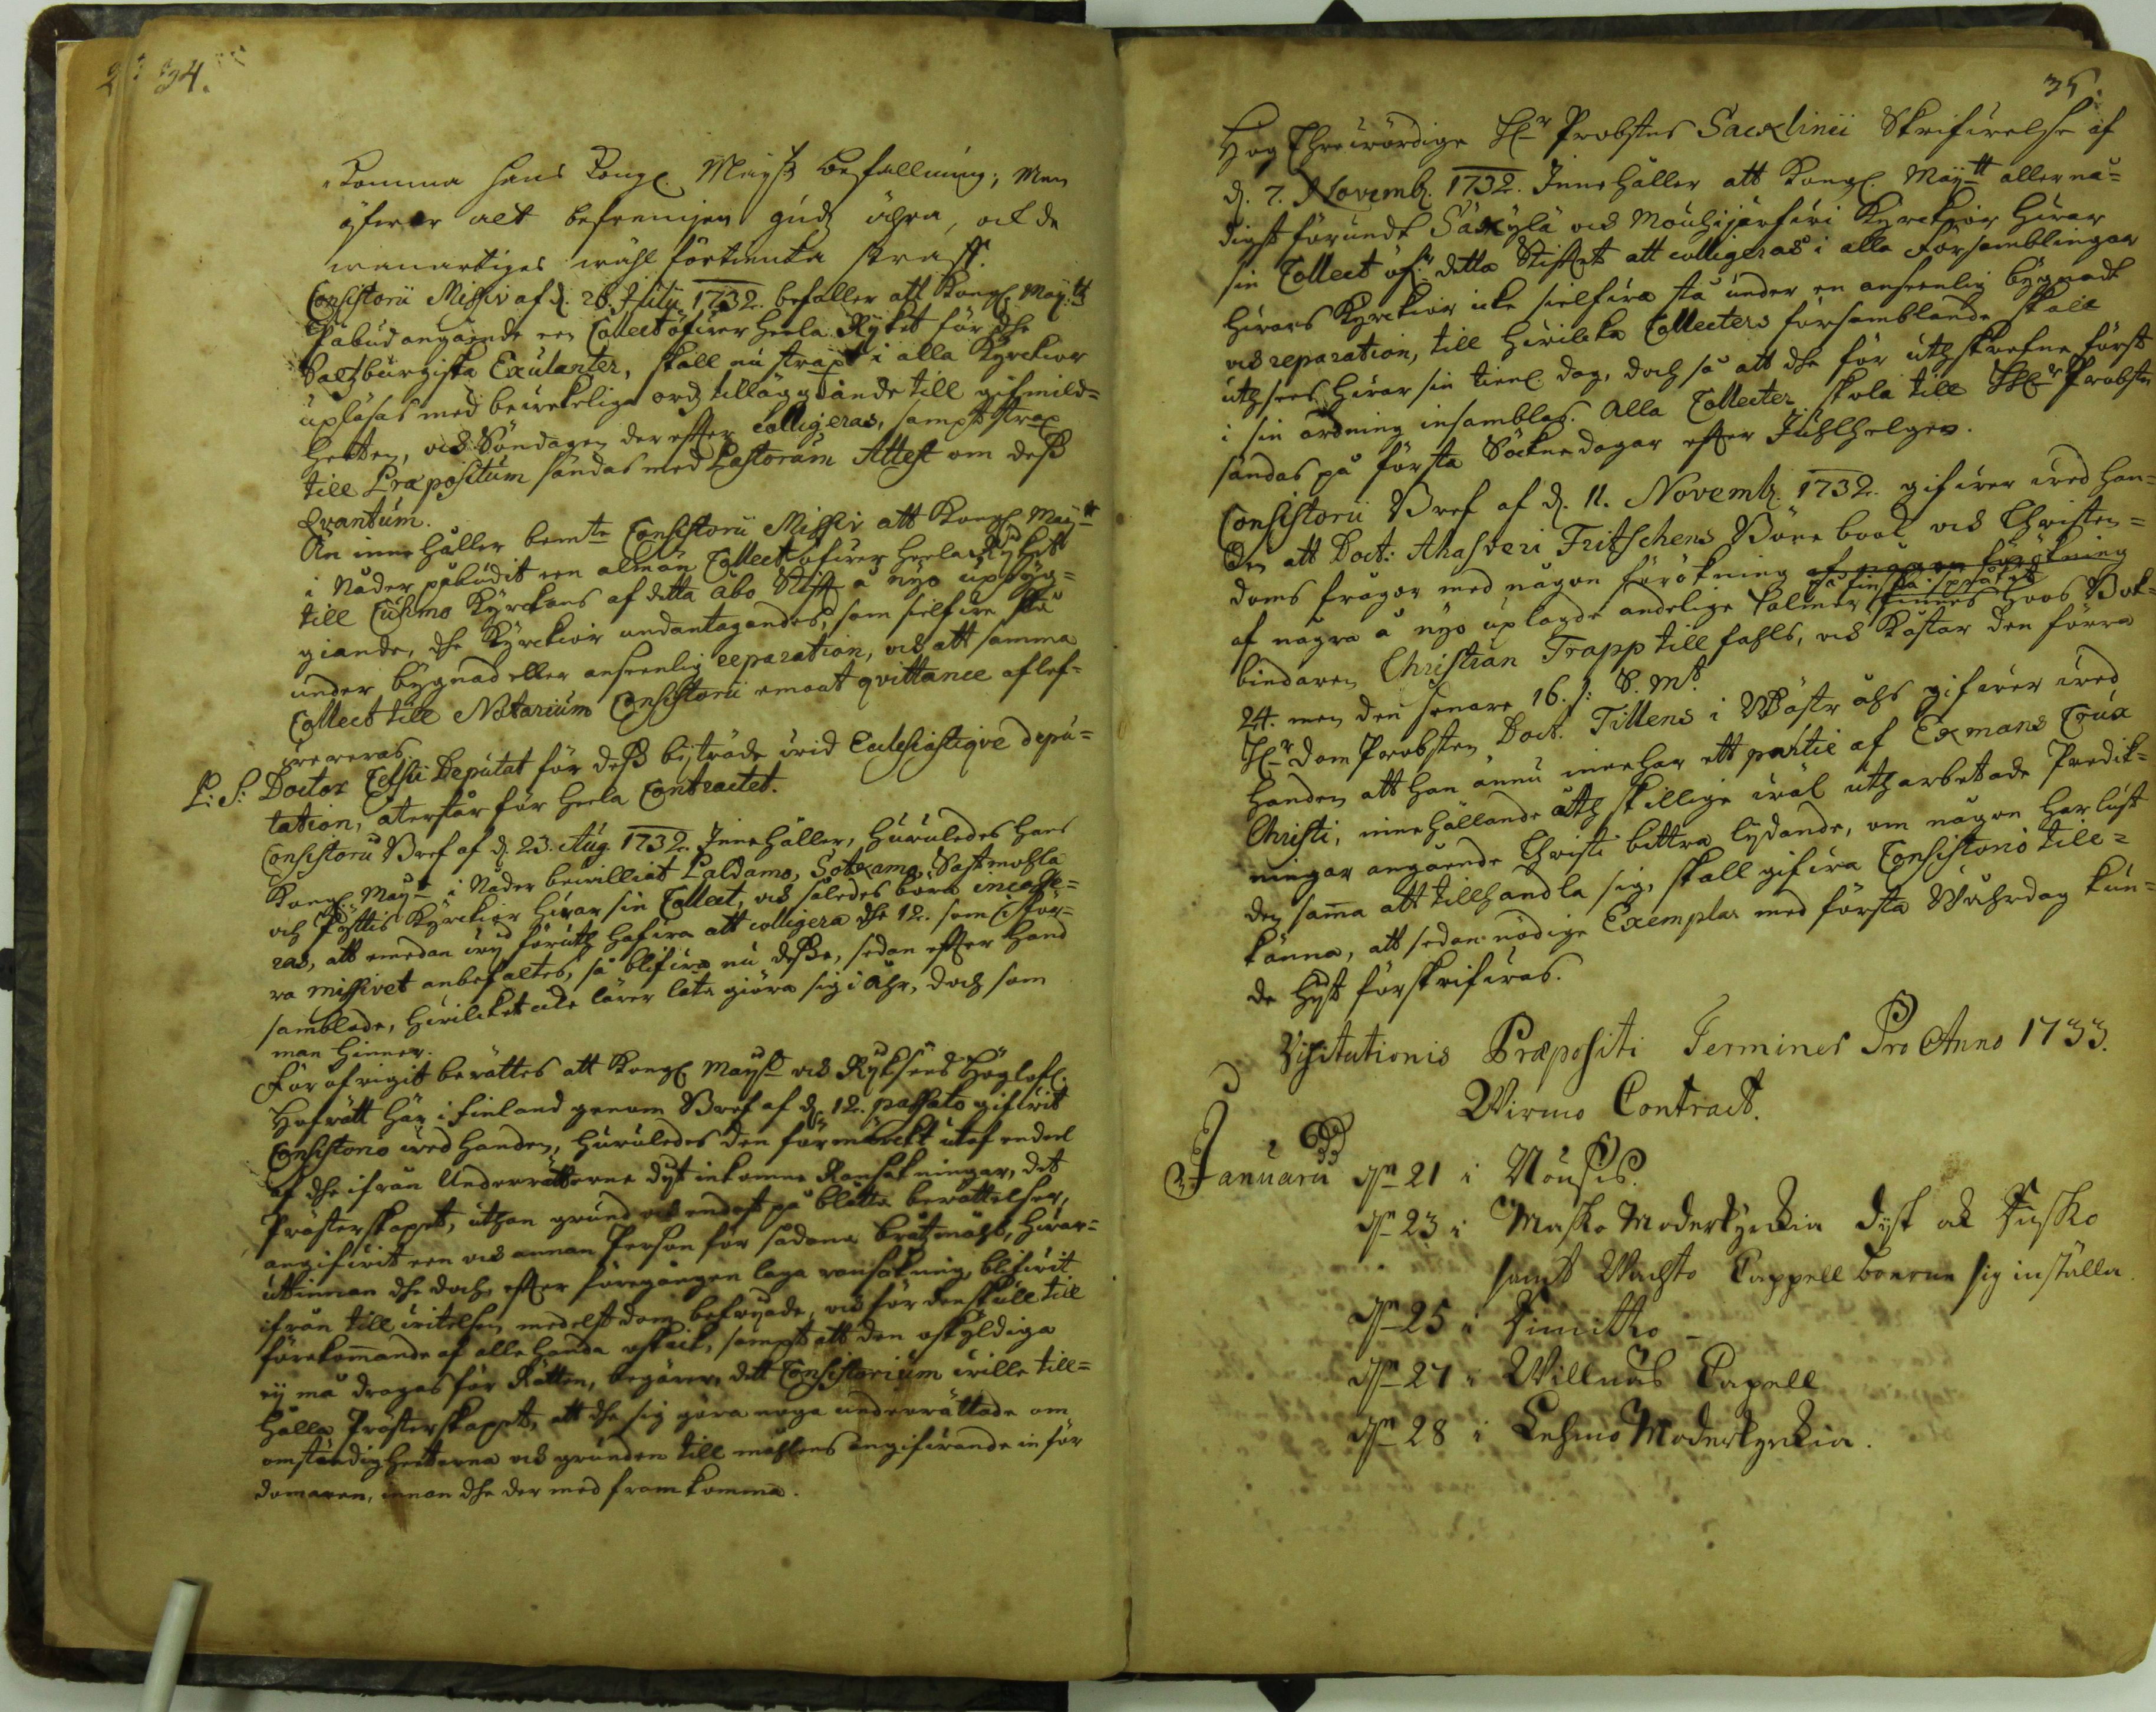 34.
komma hans Kongl. Mayst befallning; Men
öfwer alt befremjen gudz ähra, och de
wanartiges wähl förtienta straff.
Consistorii Missiv af d. 26. Julii 1732. befaller att Kongl. May:tt
Påbud angående een Collect öfwer heela Rijket för dhe
Saltzburgiska Exulanter, skall nu strax i alla Kyrckior
upläsas med bewekeliga ord tillägg ände till gifmild=
heeten, och Söndagen der efter colligeras, sampt strax
till Præpositum sändas med Pastorum Attest om dess
Qvantum.
Än innehåller bemte Consistorii Missiv att Kongl. May:tt
i Nåder påbudit een alman Collect öfwer heela Rijket
till Cuhmo Kyrckans af detta Åbo Stifft å nyo upbyg=
giande, dhe Kyrckior undantagandes, som sielfwe stå
under bygnad eller ansenlig reparation, och att samma
Collect till Notarium Consistorii emoot qvittance aflef=
wereras.
P: S: Doctor Celsii Deputat för dess bijträde wid Ecclesiastiqve depu=
tation, återstår för heela Contractet.
Consistorii Bref af d. 23. Aug. 1732. Innehåller, huruledes hans
Kongl. Mayt i Nåder bewilliat Paldamo, Sotkamo, Sastmohla
och Pöyttis Kyrckior hwar sin Collect, och således böra incasse=
ras, att emedan wij förut hafwa att colligera dhe 12. som i för=
ra missivet anbefaltes, så blifwa nu desse, sedan efter hand
samblade, hwilcket icke lärer låta giöra sig i åhr, doch som
man hinner.
För öfrigit berättes att Kongl. Mayst och Rijksens Höglofl.
Hofrätt här i Finland genom Bref af d. 12. passato gifwit
Consistorio wed handen, huruledes den förmärckt utaf endeel
af dhe ifrån Underrätterne dijt inkomne Ransakningar, det
Prästerskapet, uthan grund och endast på blåtta berättelser,
angifwit een och annan Person för sådana brotzmåhl, hwar=
uttinnan dhe doch, efter föregången laga ransakning, blifwit
ifrån till witelsen medelst dom befrijade, och för denskull till
förekommande af alle handa oskick, sampt att den oskyldiga
eij må dragas för Rätten, begärer, dett Consistorium wille till=
hålla Prästerskapet, att dhe sig göra noga underrättade om
omständigheeterna och grunden till mählens angifwande in för
domaren, innan dhe der med framkomma.
35.
Hög Ehrewördige H:r Probstens Sacklinii Skrifwelse af
d. 7. Novemb. 1732. Innehåller att Kongl. May:tt allernå=
digst förundt Säkylä och Mouhijärfwi Kyrckior hwar
sin Collect öfr detta Stiftet att colligeras i alla Församblingar
hwars Kyrckior icke sielfwa stå under en ansenlig bygnadt
och reparation, till hwilcka Collecters församblande skall
uthsees hwar sin tienl. dag, doch så att dhe för uthskrefne först
i sin ordning insamblas. Alla Collecter skola till H:r Probsten
sändas på första Söcknedagar efter Juhlhelgen.
Consistorii Bref af d. 11. Novemb. 1732. gifwer wed han=
den att Doct: Ahasveri Fritschens Bönebook och Christen=
doms frågor med någon förökning af någon förökning
af några å nyo uplagde andelige Psalmer på finska språket finnes hoos Bok=
bindaren Christian Trapp till fahls, och kåstar den förra
24. men den senare 16. s: S. Mt.
H:r Dom Probsten Doct. Tillens i Wästr åhs gifwer wed
Handen att han ännu innehar ett partie af Exmans Crux
Christi, innehållande åthskillige wäl utharbetade Predik=
ningar angående Christi bittra lijdande, om någon har lust
den samma att tillhandla sig, skall gifwa Consistorio till=
känna, att sedan nödige Exemplar med första Wåhrdag kun=
de hijt förskrifwas.
Visitationis Præpositi Termines Pro Anno 1733.
Wirmo Contract.
Januarii d:n 21 i Nousis.
d:n 23 i Masko Moderkyrckia dijt och Rusko
samt Wachto Cappell boerne sig inställa.
d:n 25 i Rimitto
d:n 27 i Willnäs Capell
d:n 28 i Lehmo Moderkyrckia.